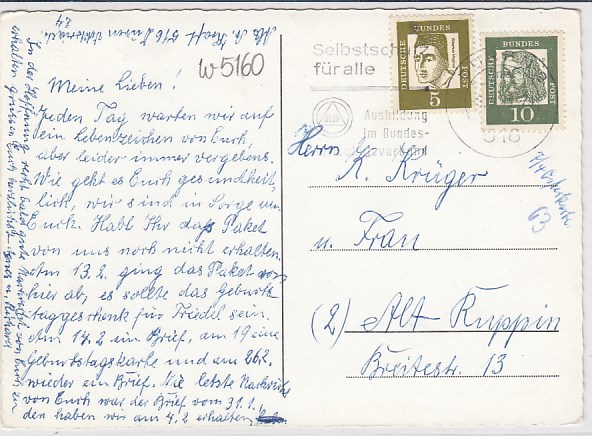 Meine Lieben!
Jeden Tag warten wir auf
ein Lebenszeichen von Euch,
aber leider immer vergebens.
Wie geht es Euch gesundheit-
lich, wir sind in Sorge um
Euch. Habt Ihr das Paket
von uns noch nicht erhalten
Am 13.2. ging das Paket von
hier ab, es sollte das Geburts
tagsgeschenk für Friedel sein.
Am 14.2 ein Brief, am 19 eine
Geburtstagskarte und am 26.2.
wieder ein Brief. Die letzte Nachricht
von Euch war der Brief vom 31.1.
den haben wir am 4.2 erhalten.
In der Hoffnung recht bald gute Nachricht von Euch zu
erhalten grüssen Euch herzlichst
516 Düren
24
w5160
Selbstschutz
für alle
Ausbildung
im Bundes-
516
DEUTSCHE
BUNDES
POST
5
DEUTSCHE
BUNDES
POST
10
Herrn
K. Krüger
u. Frau
(2) Alt Ruppin
Breitestr. 13
63